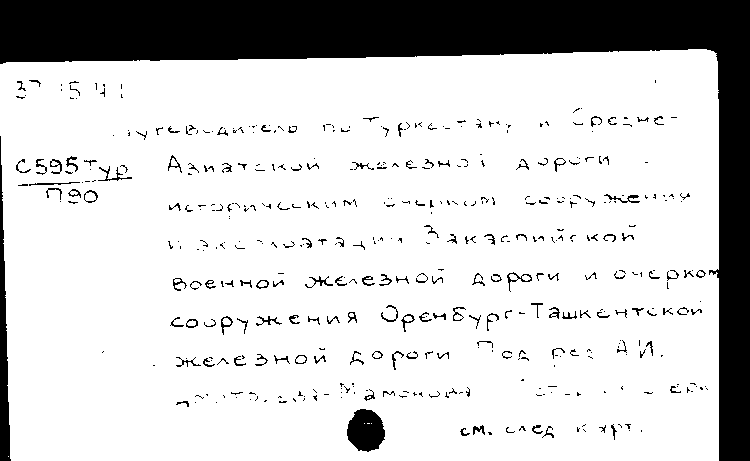 Путеводитель по Туркестану и Средне-
С595Тур
П90
Азиатской железной дороги
историческим очерком сооружения
и эксплоатации Закаспийской
военной железной дороги и очерком
сооружения Оренбург-Ташкентской
железной дороги Под ред А И.
Дмитриева-Мамонова
см. след карт.